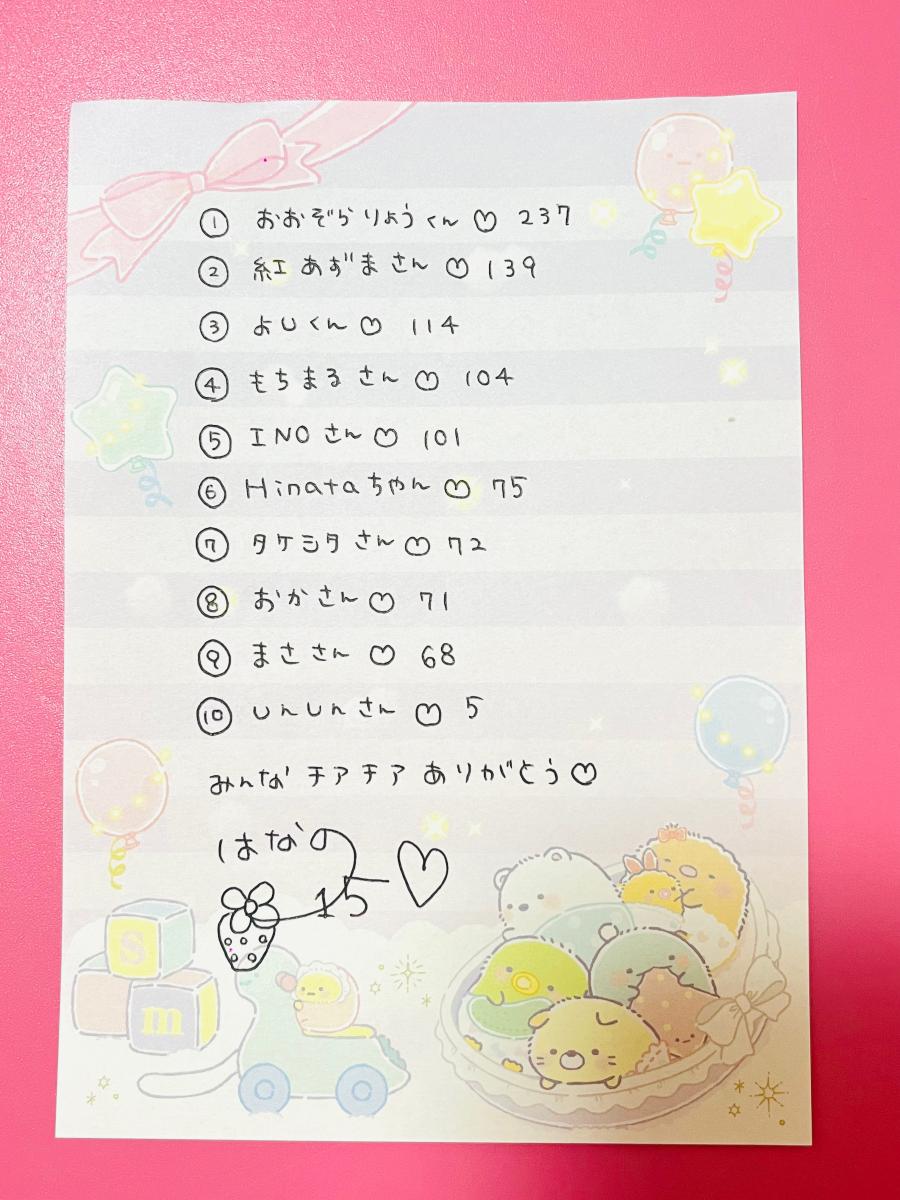 ① おおぞらりょうくん♡ 237
② 紅あずまさん♡ 139
③ よしくん♡ 114
④ もちまるさん♡ 104
⑤ INOさん♡ 101
⑥ Hinataちゃん♡ 75
⑦ タケシタさん♡ 72
⑧ おかさん♡ 71
⑨ まささん♡ 68
⑩ しんしんさん♡ 5
みんな チアチア ありがとう♡
はなの
15
S
m